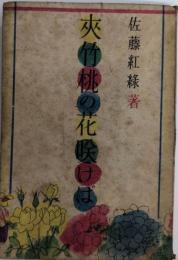 佐藤紅緑著
夾竹桃の花咲けば